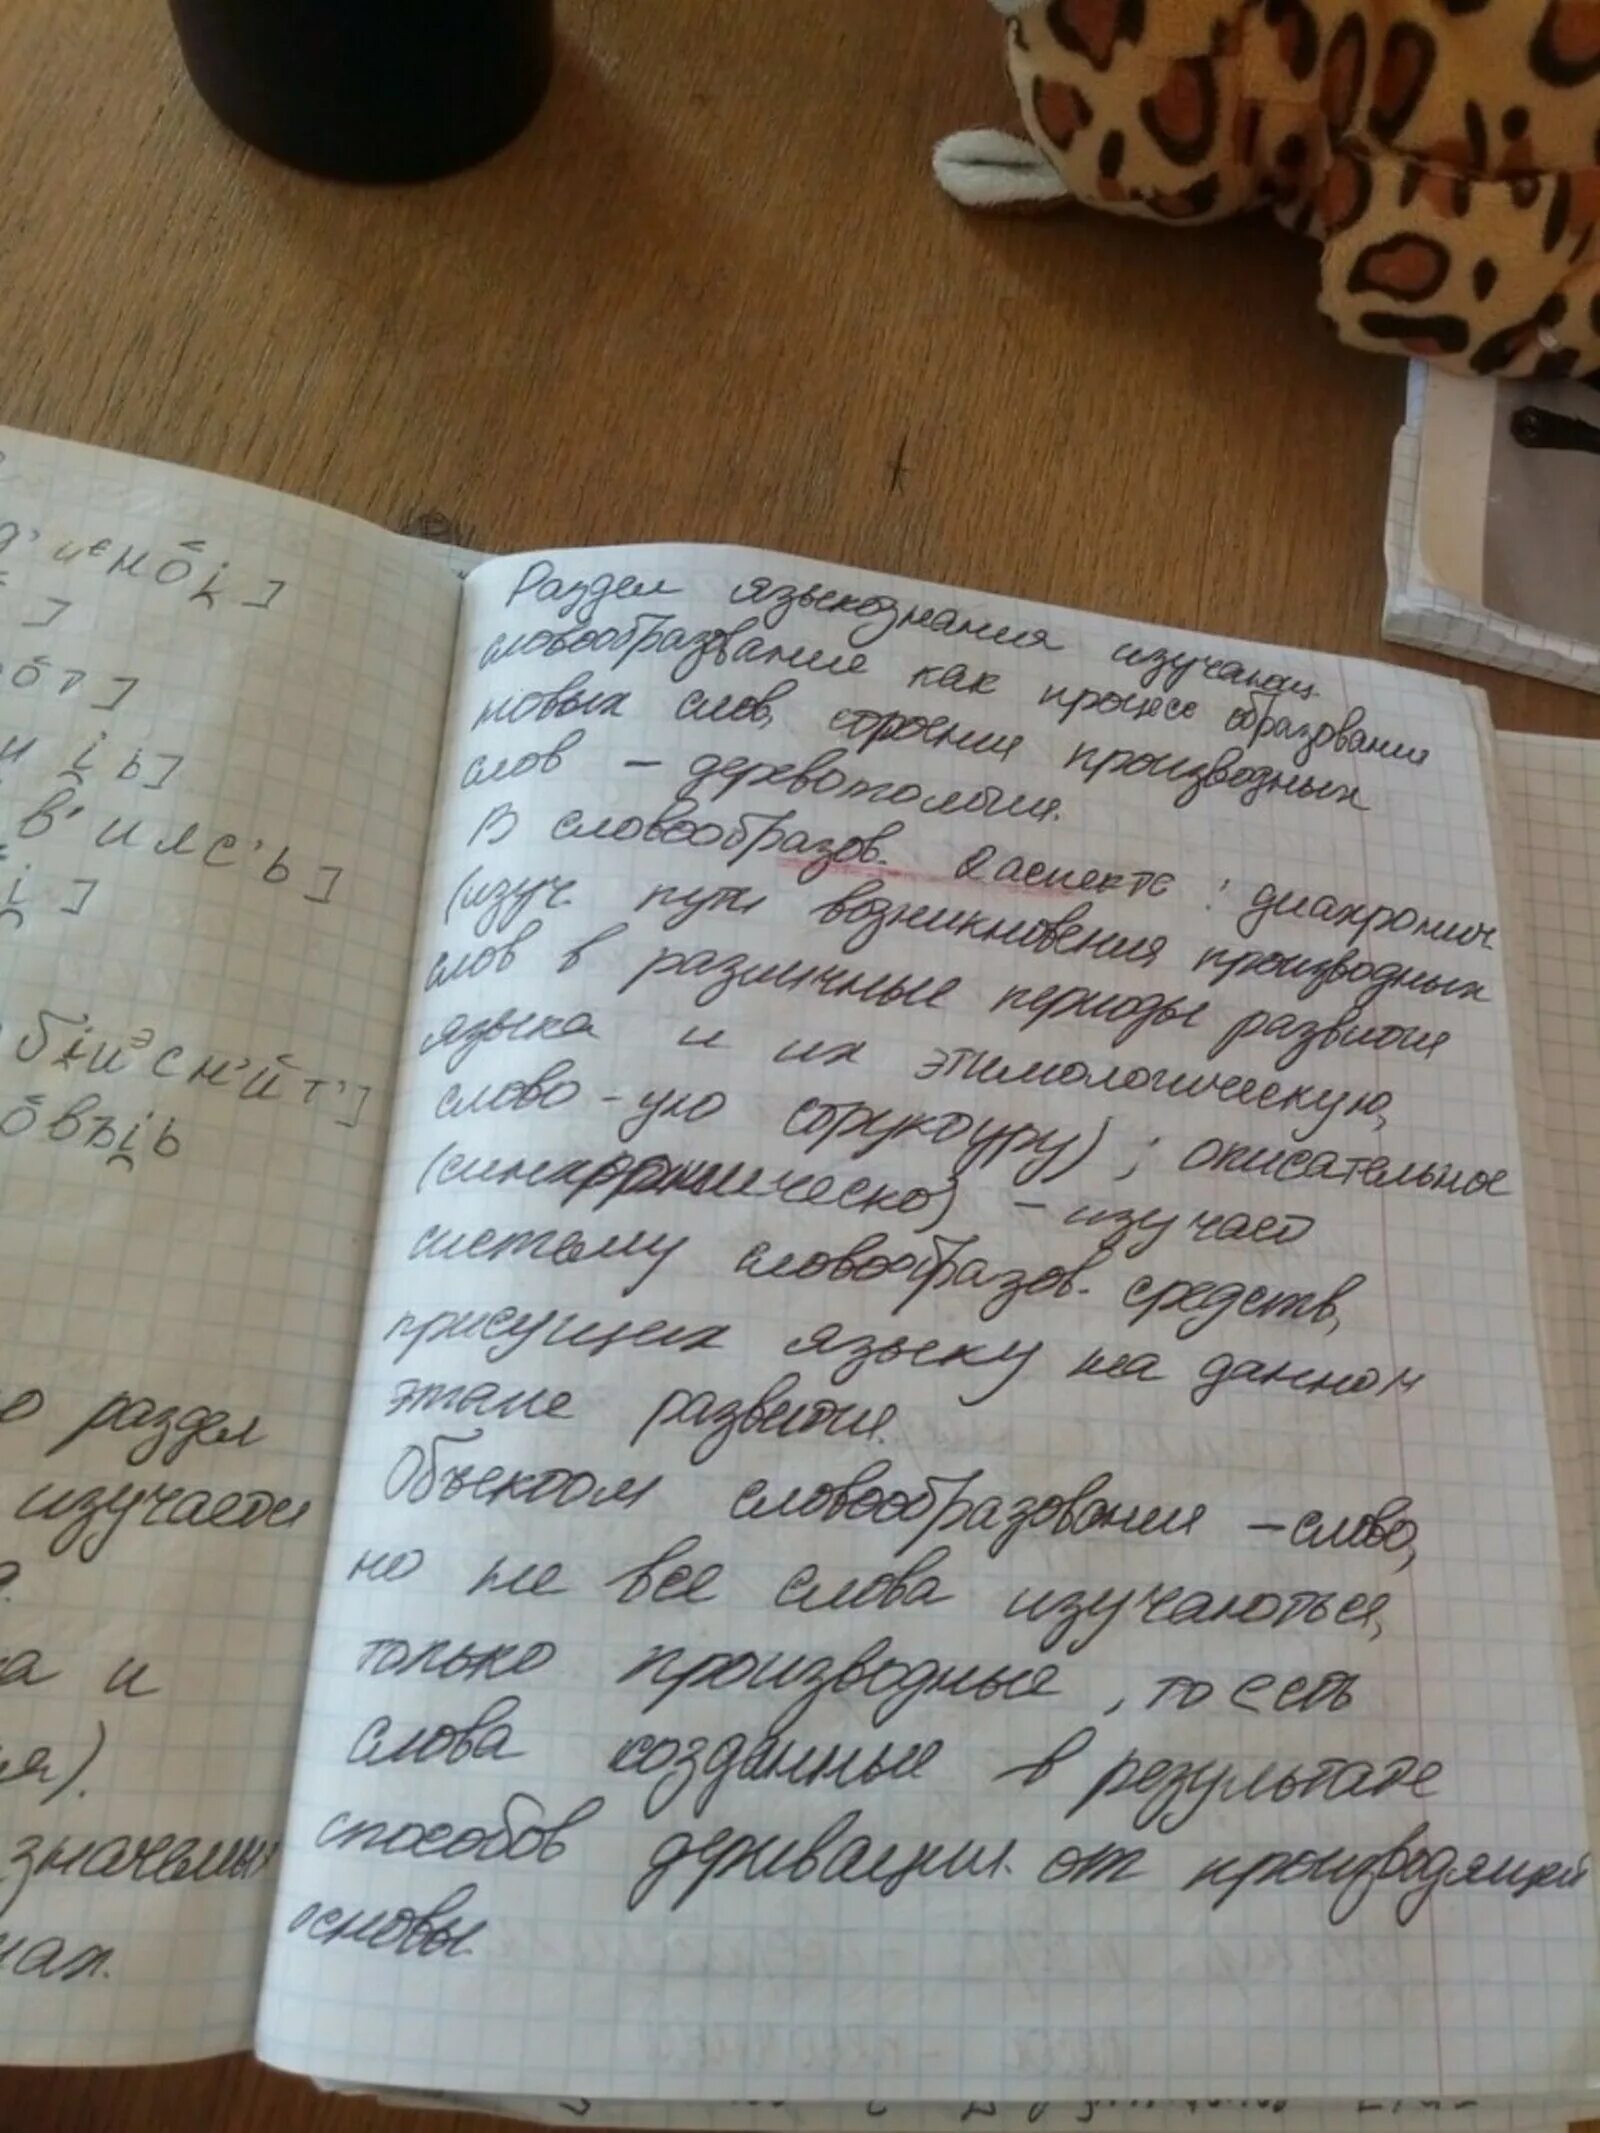 д'иэнõį]
]
õт]
и į ь]
в'ияс'ь]
į]
бįиэсн'йт']
õвъįь
о раздел
изучается
а и
ия).
значемы
ах.
Раздел языкознания изучающ.
словообразование как процесс образования
новых слов, строения производных
слов - деревотология.
В словообразов. 2 аспекта: диахронич
(изуч. пути возникновения производных
слов в различные периоды развития
языка и их этимологическую,
слово-ую структуру); описательное
(синхроническо) - изучает
систему словообразов. средств,
присущих языку на данном
этапе развития.
Объектом словообразования - слово,
но не все слова изучаються,
только производные, то есть
слова созданные в результате
способов деривации от производящей
основы.